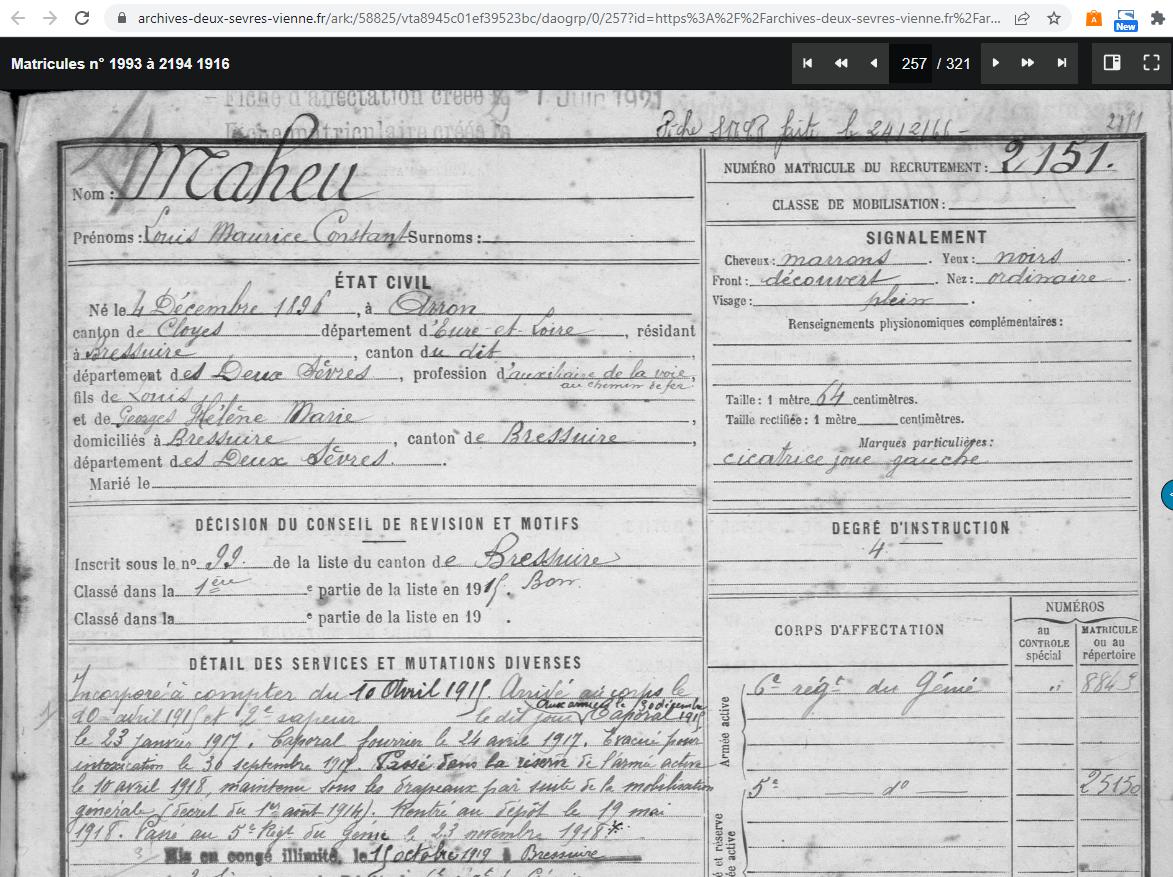 archives-deux-sevres-vienne.fr/ark:/58825/vta8945c01ef39523bc/daogrp/0/257?id=https%3A%2F%2Farchives-deux-sevres-vienne.fr%2Far...
A
New
Matricules n° 1993 à 2194 1916
257 / 321
Fiche d'affectation créée le - 1 Juin 1921
Fiche matriculaire créée le
Fiche faite le 24/2/66 -
Nom : Maheu
Prénoms : Louis Maurice Constant Surnoms :
ÉTAT CIVIL
Né le 4 Décembre 1896, à Arron
canton de Cloyes département d'Eure-et-Loire, résidant
à Bressuire, canton du dit,
département des Deux Sèvres, profession d'auxiliaire de la voie,
au chemin de fer
fils de Louis
et de Georges Hélène Marie,
domiciliés à Bressuire, canton de Bressuire,
département des Deux Sèvres.
Marié le
DÉCISION DU CONSEIL DE REVISION ET MOTIFS
Inscrit sous le n° 99 de la liste du canton de Bressuire
Classé dans la 1ère e partie de la liste en 1915. Bon
Classé dans la e partie de la liste en 19 .
DÉTAIL DES SERVICES ET MUTATIONS DIVERSES
Incorporé à compter du 10 Avril 1915 Arrivé au corps le
Aux armées le 30 décembre
10 avril 1915 et 2e sapeur le dit jour Caporal 1915
le 23 janvier 1917. Caporal fourrier le 24 avril 1917. Evacué pour
intoxication le 30 septembre 1917. Passé dans la réserve de l'armée active
le 10 avril 1918, maintenu sous les drapeaux par suite de la mobilisation
générale (décret du 1er août 1914). Rentré au dépôt le 19 mai
1918. Passé au 5e Régt du Génie le 23 novembre 1918*
Mis en congé illimité, le 15 octobre 1919 à Bressuire
NUMÉRO MATRICULE DU RECRUTEMENT : 2151.
CLASSE DE MOBILISATION :
SIGNALEMENT
Cheveux : marrons. Yeux : noirs.
Front : découvert. Nez : ordinaire
Visage : plein.
Renseignements physionomiques complémentaires :
Taille : 1 mètre 64 centimètres.
Taille rectifiée : 1 mètre centimètres.
Marques particulières :
cicatrice joue gauche
DEGRÉ D'INSTRUCTION
4
CORPS D'AFFECTATION
NUMÉROS
au CONTROLE spécial
MATRICULE ou au répertoire
Armée active
6e régt du Génie " 8849
et réserve
e active
5e do 25150